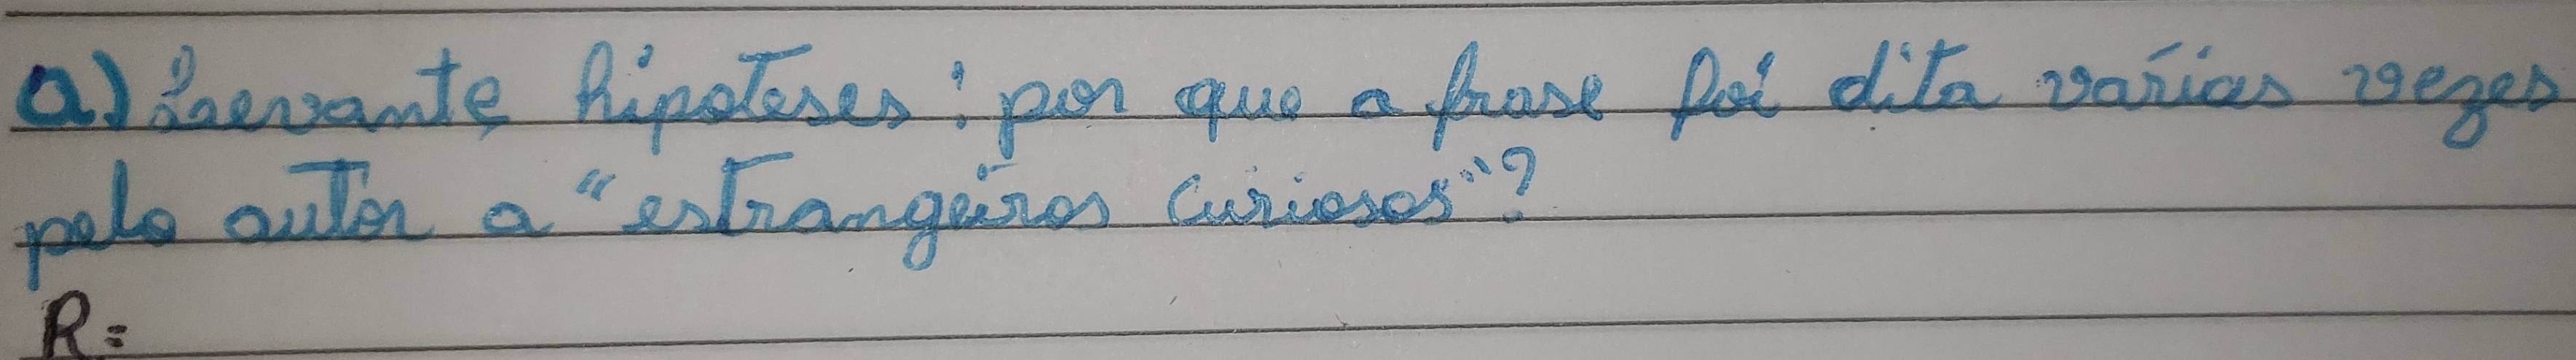 a) Levante hipoteses: por que a frase foi dita várias vezes
pelo autor a "estrangeiros curiosos"?
R=